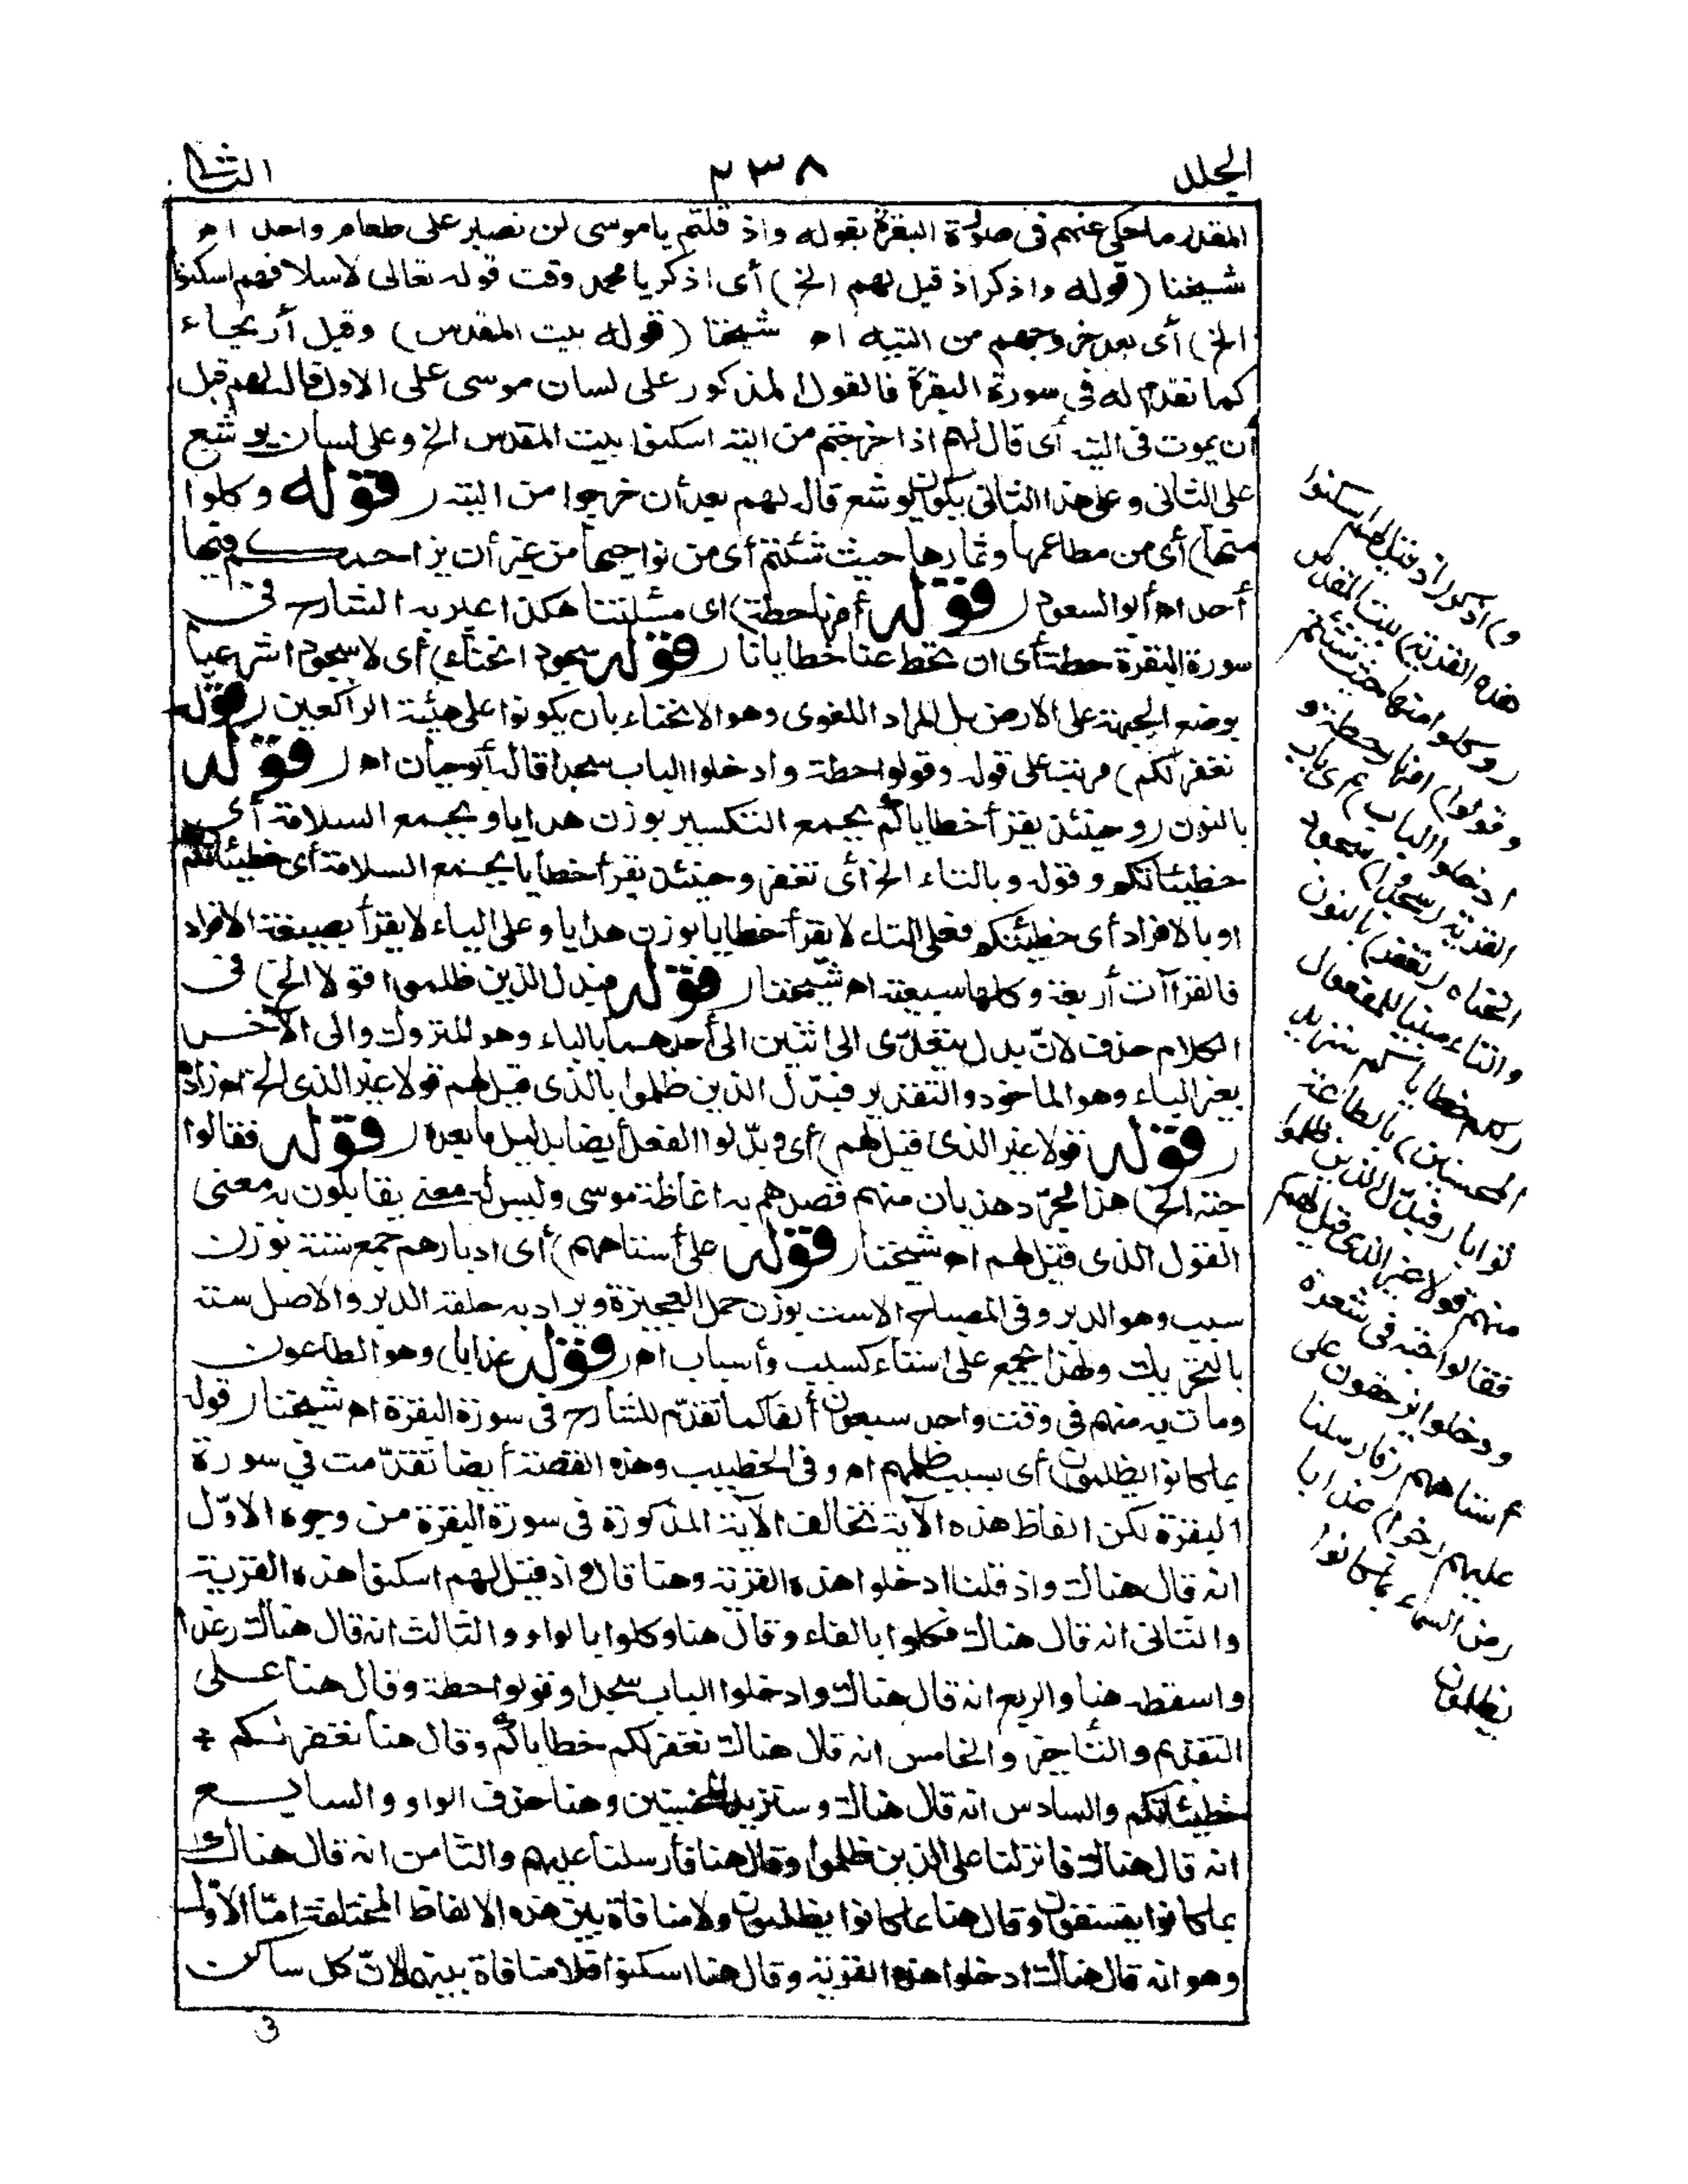 الجلد
٢٣٨
الثاني
المقدر ما حكى عنهم فى سورة البقرة بقوله واذ قلتم ياموسى لن نصبر على طعام واحد اه
شيخنا (قوله واذكر اذ قيل لهم الخ) أى اذكر يا محمد وقت قوله تعالى لاسلافهم اسكنوا
الخ) أى بعد خروجهم من التيه اه شيخنا (قوله بيت المقدس) وقيل أريحاء
كما تقدم له في سورة البقرة فالقول المذكور على لسان موسى على الاول قال لهم قبل
أن يموت فى التيه أى قال لهم اذا خرجتم من التيه اسكنوا بيت المقدس الخ وعلى لسان يوشع
على الثانى وعلى هذا الثانى يكون يوشع قال لهم بعد أن خرجوا من التيه (قوله وكلوا
منها) أى من مطاعمها وثمارها حيث شئتم أى من نواحيها من غير أن يزاحمكم فيها
أحد اه أبوالسعود (قوله أمرنا حطة) اى مسئلتنا هكذا عبر به الشارح فى
سورة البقرة حطة أى ان تحط عنا خطايانا (قوله سجود انحناء) أى لا سجودا شرعيا
بوضع الجبهة على الارض بل المراد اللغوى وهو الانحناء بان يكونوا على هيئة الراكعين (قوله
نغفر لكم) مرتب على قوله وقولوا حطة وادخلوا الباب سجدا قاله أبوحيان اه (قوله
بالنون) وحينئذ يقرأ خطاياكم بجمع التكسير بوزن هدايا وبجمع السلامة أى
خطيئاتكم وقوله وبالتاء الخ أى تغفر وحينئذ يقرأ خطايا بجمع السلامة أى خطيئاتكم
او بالافراد أى خطيئتكم فعلى التاء لا يقرأ خطايا بوزن هدايا وعلى الياء لا يقرأ بصيغة الافراد
فالقراآت أربعة وكلها سبعية اه شيخنا (قوله فبدل الذين ظلموا قولا الخ) فى
الكلام حذف لانّ بدل يتعدّى الى اثنين الى أحدهما بالباء وهو المتروك والى الآخر
بغير الباء وهو المأخوذ والتقدير فبدّل الذين ظلموا بالذى قيل لهم قولا غير الذى الخ اه زاده
(قوله قولا غير الذى قيل لهم) أى وبدّلوا الفعل أيضا بدليل ما بعده (قوله فقالوا
حبة الخ) هذا مجرّد هذيان منهم قصدهم به اغاظة موسى وليس له معنى يقابلون به معنى
القول الذى قيل لهم اه شيخنا (قوله على أستاههم) أى ادبارهم جمع سته بوزن
سبب وهو الدبر وفى المصباح الاست بوزن حمل العجيزة ويراد به حلقة الدبر والاصل سته
بالتحريك ولهذا يجمع على استاه كسبب وأسباب اه (قوله عذابا) وهو الطاعون
ومات به منهم فى وقت واحد سبعون ألفا كما تقدّم للشارح فى سورة البقرة اه شيخنا (قوله
بما كانوا يظلمون) أى بسبب ظلمهم اه وفى الخطيب وهذه القصة أيضا تقدّمت في سورة
البقرة لكن الفاظ هذه الآية تخالف الآية المذكورة فى سورة البقرة من وجوه الاوّل
انه قال هناك واذ قلنا ادخلوا هذه القرية وهنا قال واذ قيل لهم اسكنوا هذه القرية
والثانى انه قال هناك فكلوا بالفاء وقال هنا وكلوا بالواو والثالث انه قال هناك رغدا
واسقطه هنا والرابع انه قال هناك وادخلوا الباب سجدا وقولوا حطة وقال هنا على
التقديم والتأخير والخامس انه قال هناك نغفر لكم خطاياكم وقال هنا نغفر لكم
خطيئاتكم والسادس انه قال هناك وسنزيد المحسنين وهنا حذف الواو والسابع
انه قال هناك فانزلنا على الذين ظلموا وقال هنا فأرسلنا عليهم والثامن انه قال هناك
بما كانوا يفسقون وقال هنا بما كانوا يظلمون ولا منافاة بين هذه الالفاظ المختلفة امّا الأوّل
وهو انه قال هناك ادخلوا هذه القرية وقال هنا اسكنوا فلا منافاة بينهما لانّ كل ساكن
و) اذكر (اذ قيل لهم اسكنوا
هذه القرية) بيت المقدس
(وكلوا منها حيث شئتم
وقولوا) امرنا (حطة و
ادخلوا الباب) أى باب
القرية (سجدا) سجود
انحناء (نغفر) بالنون
والتاء مبنيا للمفعول
(لكم خطاياكم سنزيد
المحسنين) بالطاعة
ثوابا (فبدّل الذين ظلموا
منهم قولا غير الذى قيل لهم
فقالوا حبة فى شعرة
ودخلوا يزحفون على
أستاههم (فارسلنا
عليهم رجزا) عذابا
(من السماء بما كانوا
يظلمون